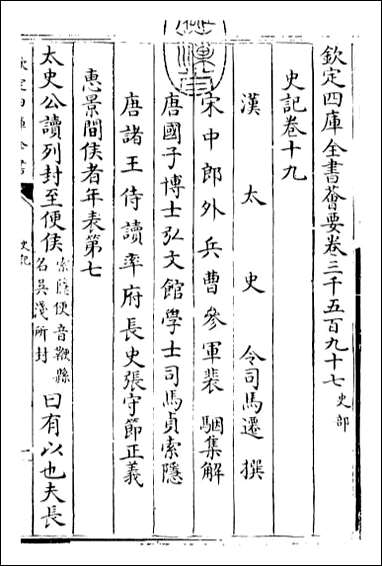 欽定四庫全書薈要卷三千五百九十七 史部
史記卷十九
漢太史令司馬遷撰
宋中郎外兵曹參軍裴駰集解
唐國子博士弘文館學士司馬貞索隱
唐諸王侍讀率府長史張守節正義
惠景間侯者年表第七
太史公讀列封至便侯 索隱便音鞭縣名吳淺所封 曰有以也夫長